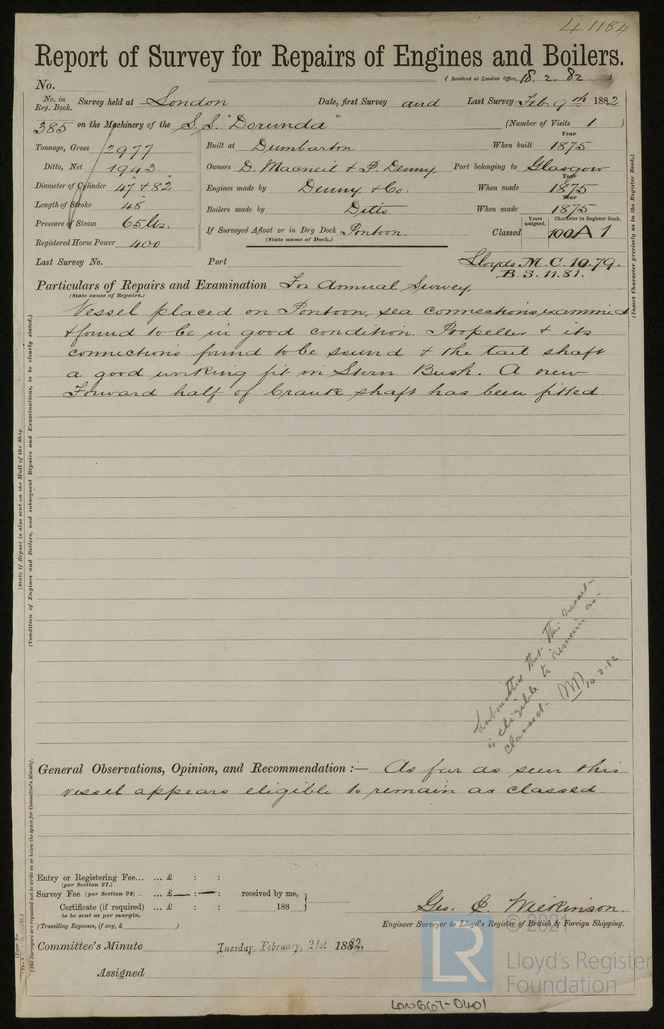 41184
Report of Survey for Repairs of Engines and Boilers.
(Received at London Office, 18.2.82
No.
No. in Reg. Book. Survey held at London Date, first Survey and Last Survey Feb 9th 1882
385 on the Machinery of the S.S. "Dorunda" (Number of Visits 1 )
Tonnage, Gross 2977 Built at Dumbarton When built Year 1875
Ditto, Net 1943 Owners D. Macneil & P. Denny Port belonging to Glasgow
Diameter of Cylinder 47 & 82 Engines made by Denny & Co. When made Year 1875
Length of Stroke 48 Boilers made by Ditto When made Year 1875
Pressure of Steam 65 lbs. If Surveyed Afloat or in Dry Dock Pontoon Classed Years assigned. 100 Character in Register Book. A 1
Registered Horse Power 400 (State name of Dock.)
Last Survey No. Port Lloyds M.C. 10.79.
B.S. 11.81.
Particulars of Repairs and Examination For Annual Survey
(State cause of Repairs.)
Vessel placed on Pontoon, sea connections examined
& found to be in good condition. Propeller & its
connections found to be sound & the tail shaft
a good working fit in Stern Bush. A new
Forward half of Crank shaft has been fitted.
(Insert Character precisely as in the Register Book.)
(State if Report is also sent on the Hull of the Ship.
(Condition of Engines and Boilers, and subsequent Repairs and Examinations, to be clearly stated.)
Submitted that this vessel
is eligible to remain as
classed.
14.2.82
General Observations, Opinion, and Recommendation :— As far as seen this
vessel appears eligible to remain as classed.
Entry or Registering Fee... ... £ : :
(per Section 27.)
Survey Fee (per Section 28) ... ... £ — : — : received by me,
Certificate (if required) ... £ : : 188
to be sent as per margin.
(Travelling Expenses, if any, £ )
Geo. E. Wilkinson.
Engineer Surveyor to Lloyd's Register of British & Foreign Shipping.
Committee's Minute Tuesday, February, 21st 1882.
Assigned
(The Surveyors are requested not to write on or below the space for Committee's Minute).
© 2021
LR
Lloyd's Register
Foundation
LON667-0401